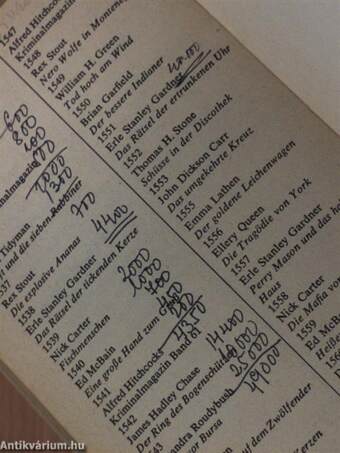 1547
Alfred Hitchcocks
Kriminalmagazin
1548
Rex Stout
Nero Wolfe in Montenegro
1549
William H. Green
Tod hoch am Wind
1550
Brian Garfield
Der bessere Indianer
1551
Erle Stanley Gardner
Das Rätsel der ertrunkenen Uhr
1552
Thomas H. Stone
Schüsse in der Discothek
1553
John Dickson Carr
Das umgekehrte Kreuz
1555
Emma Lathen
Der goldene Leichenwagen
1556
Ellery Queen
Die Tragödie von York
1557
Erle Stanley Gardner
Perry Mason und das
Haus
1558
Nick Carter
Die Mafia
1559
Ed McBain
600
800
Tidyman
und die sieben Rabbiner
1300
700
4400
Rex Stout
Die explosive Ananas
1538
Erle Stanley Gardner
Das Rätsel der tickenden Kerze
1539
Nick Carter
Fischmenschen
1540
Ed McBain
Eine große Hand zum
1541
Alfred Hitchcocks
Kriminalmagazin Band
1542
James Hadley Chase
Der Ring des
2000
1000
4350
14400
10.000
25.000
49.000
Roudybush
Bursa
auf dem Zwölfender
Antikvárium.hu